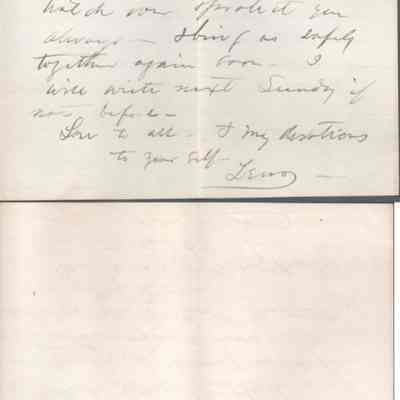 watch over & protect you
always – & bring us safely
together again soon – I
will write next Sunday if
not before –
Love to all – & my devotions
to your self –
Lewis